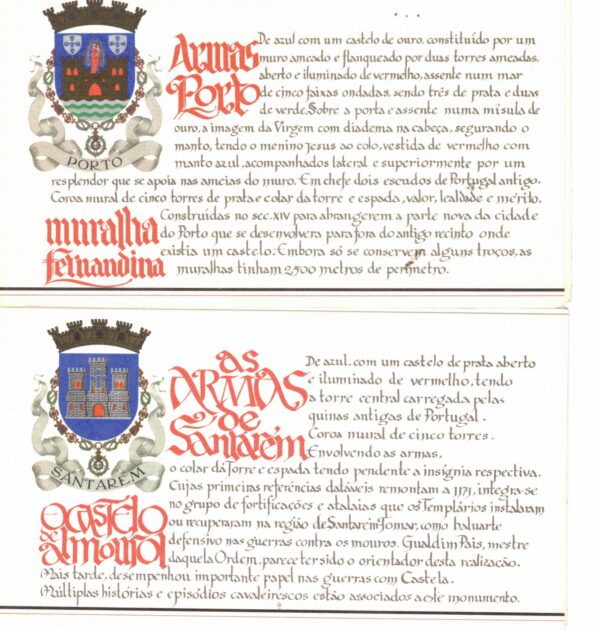 Armas
Porto
De azul com um castelo de ouro, constituído por um
muro ameado e flanqueado por duas torres ameadas,
aberto e iluminado de vermelho, assente num mar
de cinco faixas ondadas, sendo três de prata e duas
de verde. Sobre a porta e assente numa mísula de
ouro, a imagem da Virgem com diadema na cabeça, segurando o
manto, tendo o menino Jesus ao colo, vestida de vermelho com
manto azul, acompanhados lateral e superiormente por um
resplendor que se apoia nas ameias do muro. Em chefe dois escudos de Portugal antigo.
Coroa mural de cinco torres de prata e colar da torre e espada, valor, lealdade e mérito.
PORTO
muralha
fernandina
Construídas no sec. XIV para abrangerem a parte nova da cidade
do Porto que se desenvolvera para fora do antigo recinto onde
existia um castelo. Embora só se conservem alguns troços, as
muralhas tinham 2500 metros de perímetro.
as
ARMAS
de
Santarém
De azul, com um castelo de prata aberto
e iluminado de vermelho, tendo
a torre central carregada pelas
quinas antigas de Portugal.
Coroa mural de cinco torres.
Envolvendo as armas,
o colar da Torre e espada tendo pendente a insígnia respectiva.
SANTARÉM
O CASTELO
de
almourol
Cujas primeiras referências datáveis remontam a 1171, integra-se
no grupo de fortificações e atalaias que os Templários instalaram
ou recuperaram na região de Santarém-Tomar, como baluarte
defensivo nas guerras contra os mouros. Gualdim Pais, mestre
daquela Ordem, parece ter sido o orientador desta realização.
Mais tarde, desempenhou importante papel nas guerras com Castela.
Múltiplas histórias e episódios cavaleirescos estão associados a este monumento.